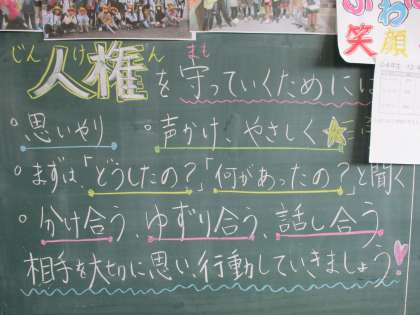 ふわ
笑顔
じんけん まも
人権を守っていくためには
・思いやり ・声かけ、やさしく
・まずは、「どうしたの?」「何があったの?」と聞く
・分け合う、ゆずり合う、話し合う
相手を大切に思い、行動していきましょう!